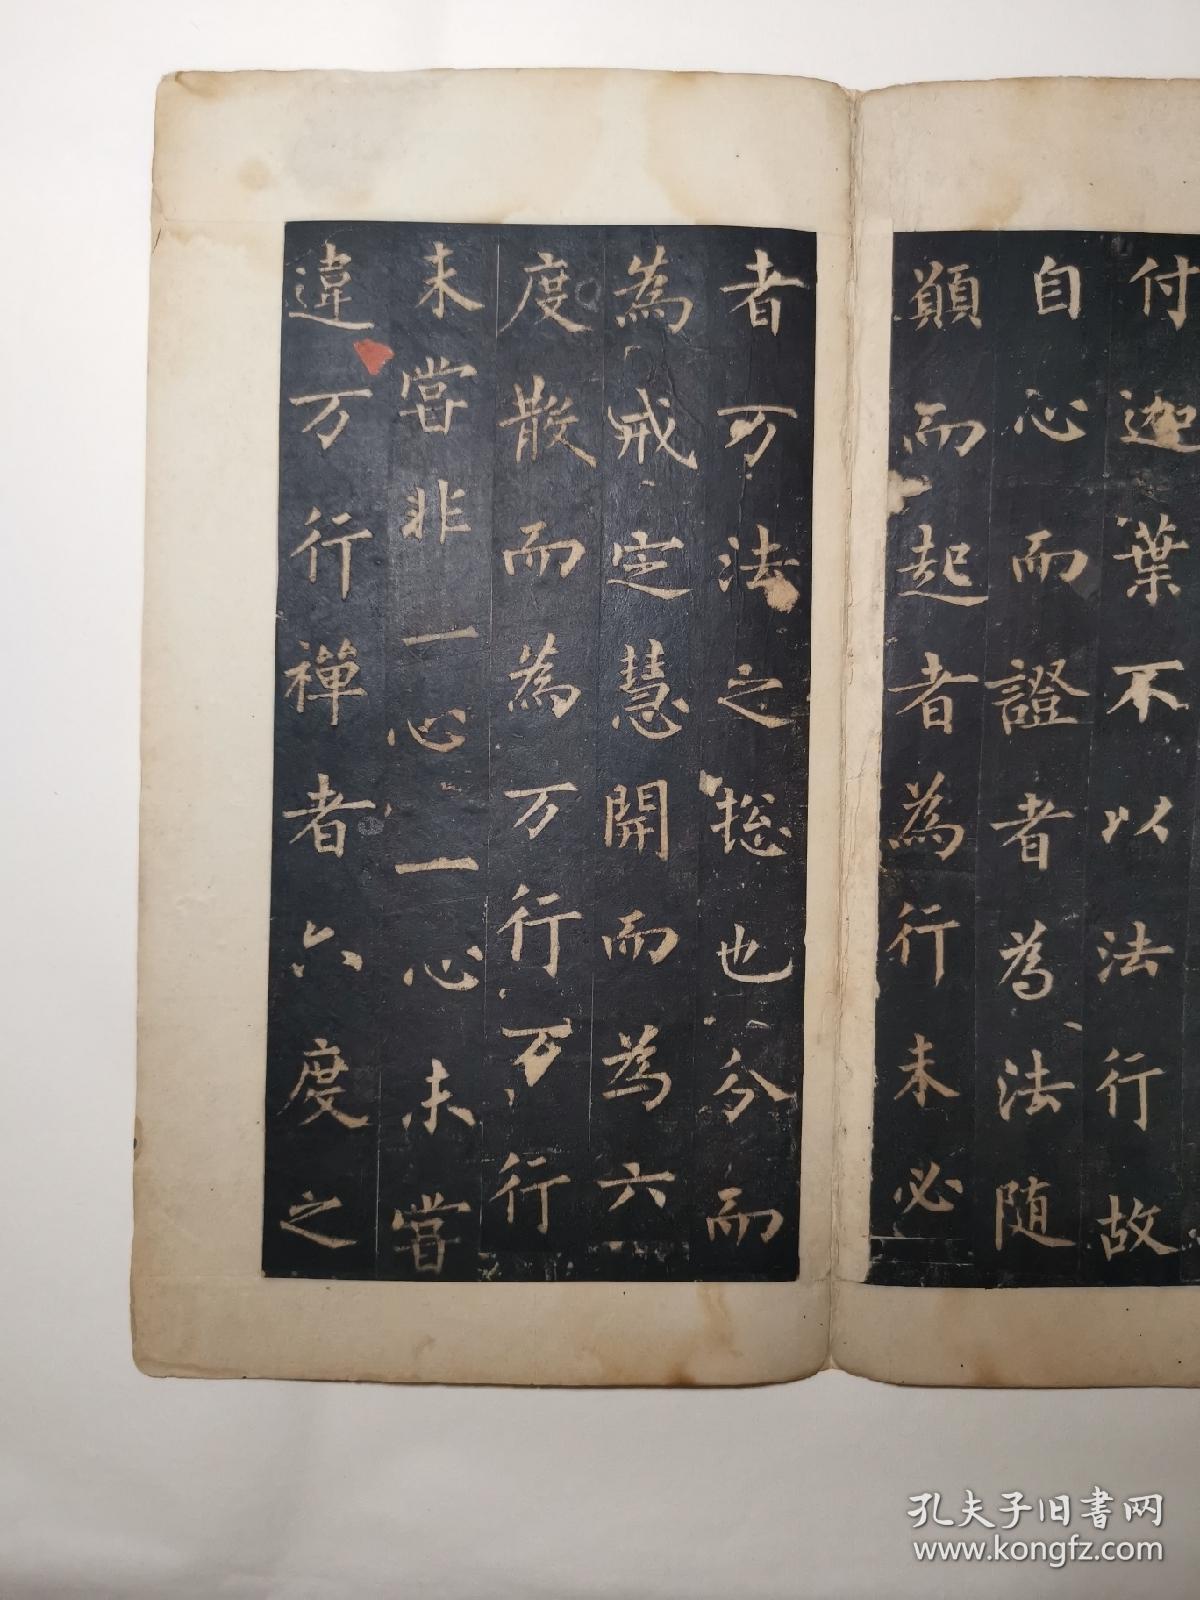 付迦葉不以法行故
自心而證者為法随
願而起者為行未必
者万法之揔也分而
為戒定慧開而為六
度散而為万行万行
未嘗非一心一心未嘗
違万行禪者六度之
孔夫子旧书网
www.kongfz.com